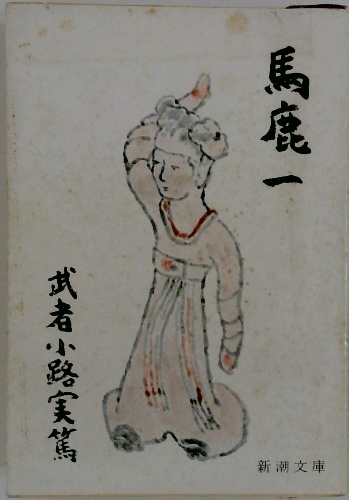 馬鹿一
武者小路実篤
新潮文庫